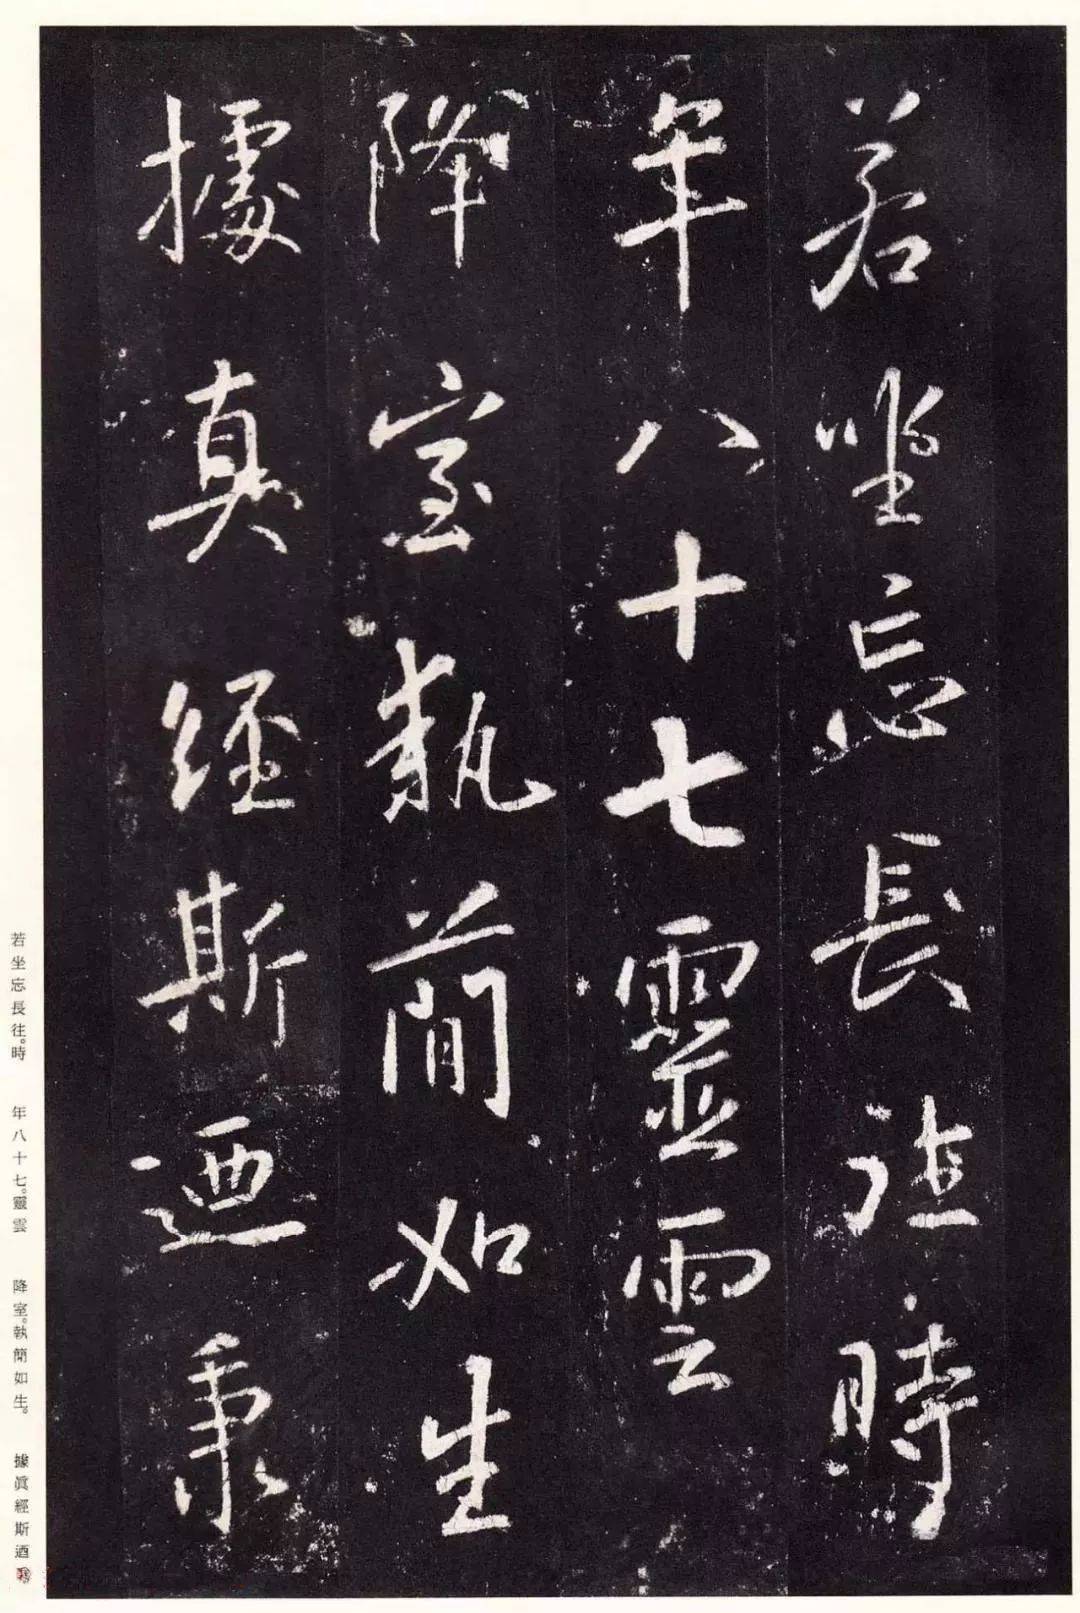 若坐忘長往時
年八十七靈雲
降室執簡如生
據真經斯迺秉
若坐忘長往。時
年八十七。靈雲
降室。執簡如生。
據眞經斯迺